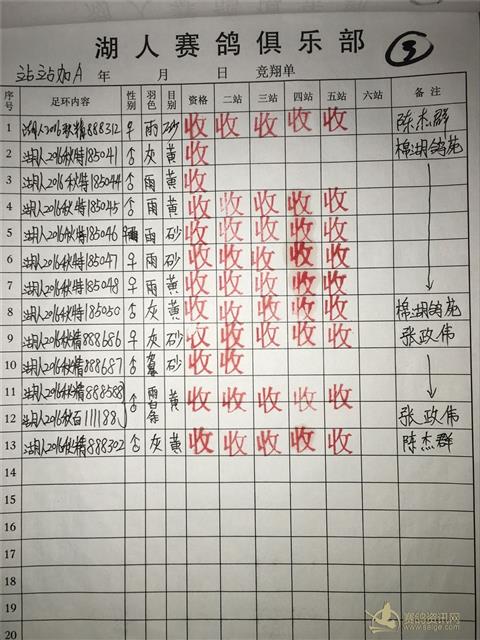 湖人赛鸽俱乐部 ③
站站加A 年 月 日 竞翔单
序号 足环内容 性别 羽色 目别 资格 二站 三站 四站 五站 六站 备注
1 湖人2016秋精888312 ♀ 雨 砂 收 收 收 收 收 陈杰群
2 湖人2016秋特185041 合 灰 黄 收 棉湖鸽苑
3 湖人2016秋特185044 合 雨 黄 收
4 湖人2016秋特185045 合 雨 黄 收 收 收 收 收
5 湖人2016秋特185046 雨 砂 收 收 收 收 收
6 湖人2016秋特185047 ♀ 雨 砂 收 收 收 收 收
7 湖人2016秋特185048 ♀ 雨 黄 收 收 收 收 收
8 湖人2016秋特185050 合 灰 黄 收 收 收 收 收 棉湖鸽苑
9 湖人2016秋精888686 ♀ 灰 砂 收 收 收 收 收 张政伟
10 湖人2016秋精888687 合 砂 收 收
11 湖人2016秋精888588 合 雨白条 黄 收 收 收 收 收
12 湖人2016秋百111188 张政伟
13 湖人2016秋精888302 合 灰 黄 收 收 收 收 收 陈杰群
14
15
16
17
18
19
20
赛鸽资讯网
www.saige.com